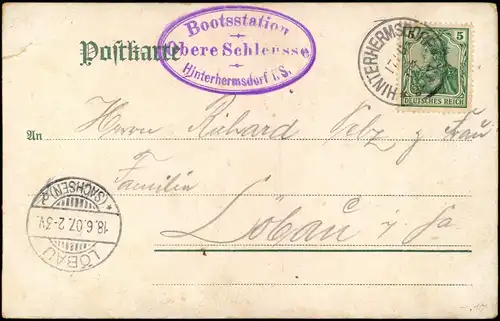 Bootsstation
Obere Schleusse
Hinterhermsdorf i. S.
Postkarte
HINTERHERMSDORF
5
DEUTSCHES REICH
An
Herrn Richard
Familie
Löbau i/Sa
(SACHSEN) 2
18.6.07. 2-3V.
LÖBAU